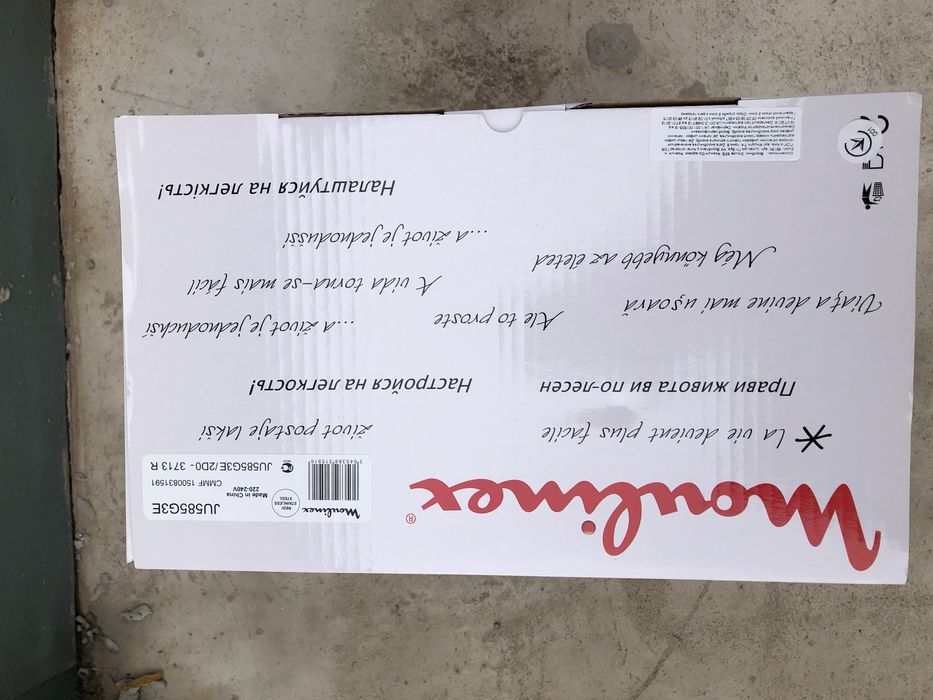 Moulinex®
* La vie devient plus facile
Прави живота ви по-лесен
Viaţa devine mai uşoară
Még könnyebb az életed
Ale to proste
život postaje lakši
Настройся на легкость!
...a život je jednodušší
A vida torna-se mais fácil
...a život je jednoduchší
Налаштуйся на легкість!
Moulinex
RED/
STAINLESS
STEEL
JU585G3E
220-240V
Made in China
CMMF 1500831591
3 045388 315916
JU585G3E/2D0 - 3713 R
001